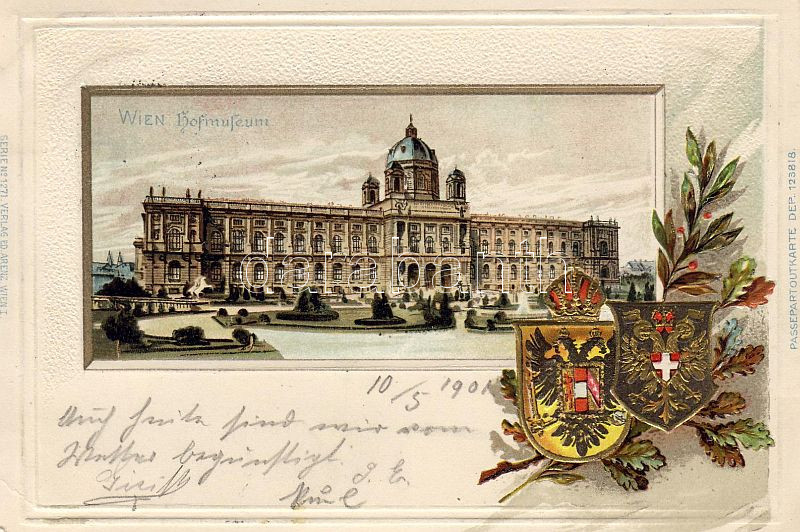 WIEN Hofmuseum
SERIE No 1271. VERLAG ED. ARENZ, WIEN I.
PASSEPARTOUTKARTE DEP. 123818.
darabanth.com
10/5 1901
Auch heute sind wir vom
Wetter begünstigt.